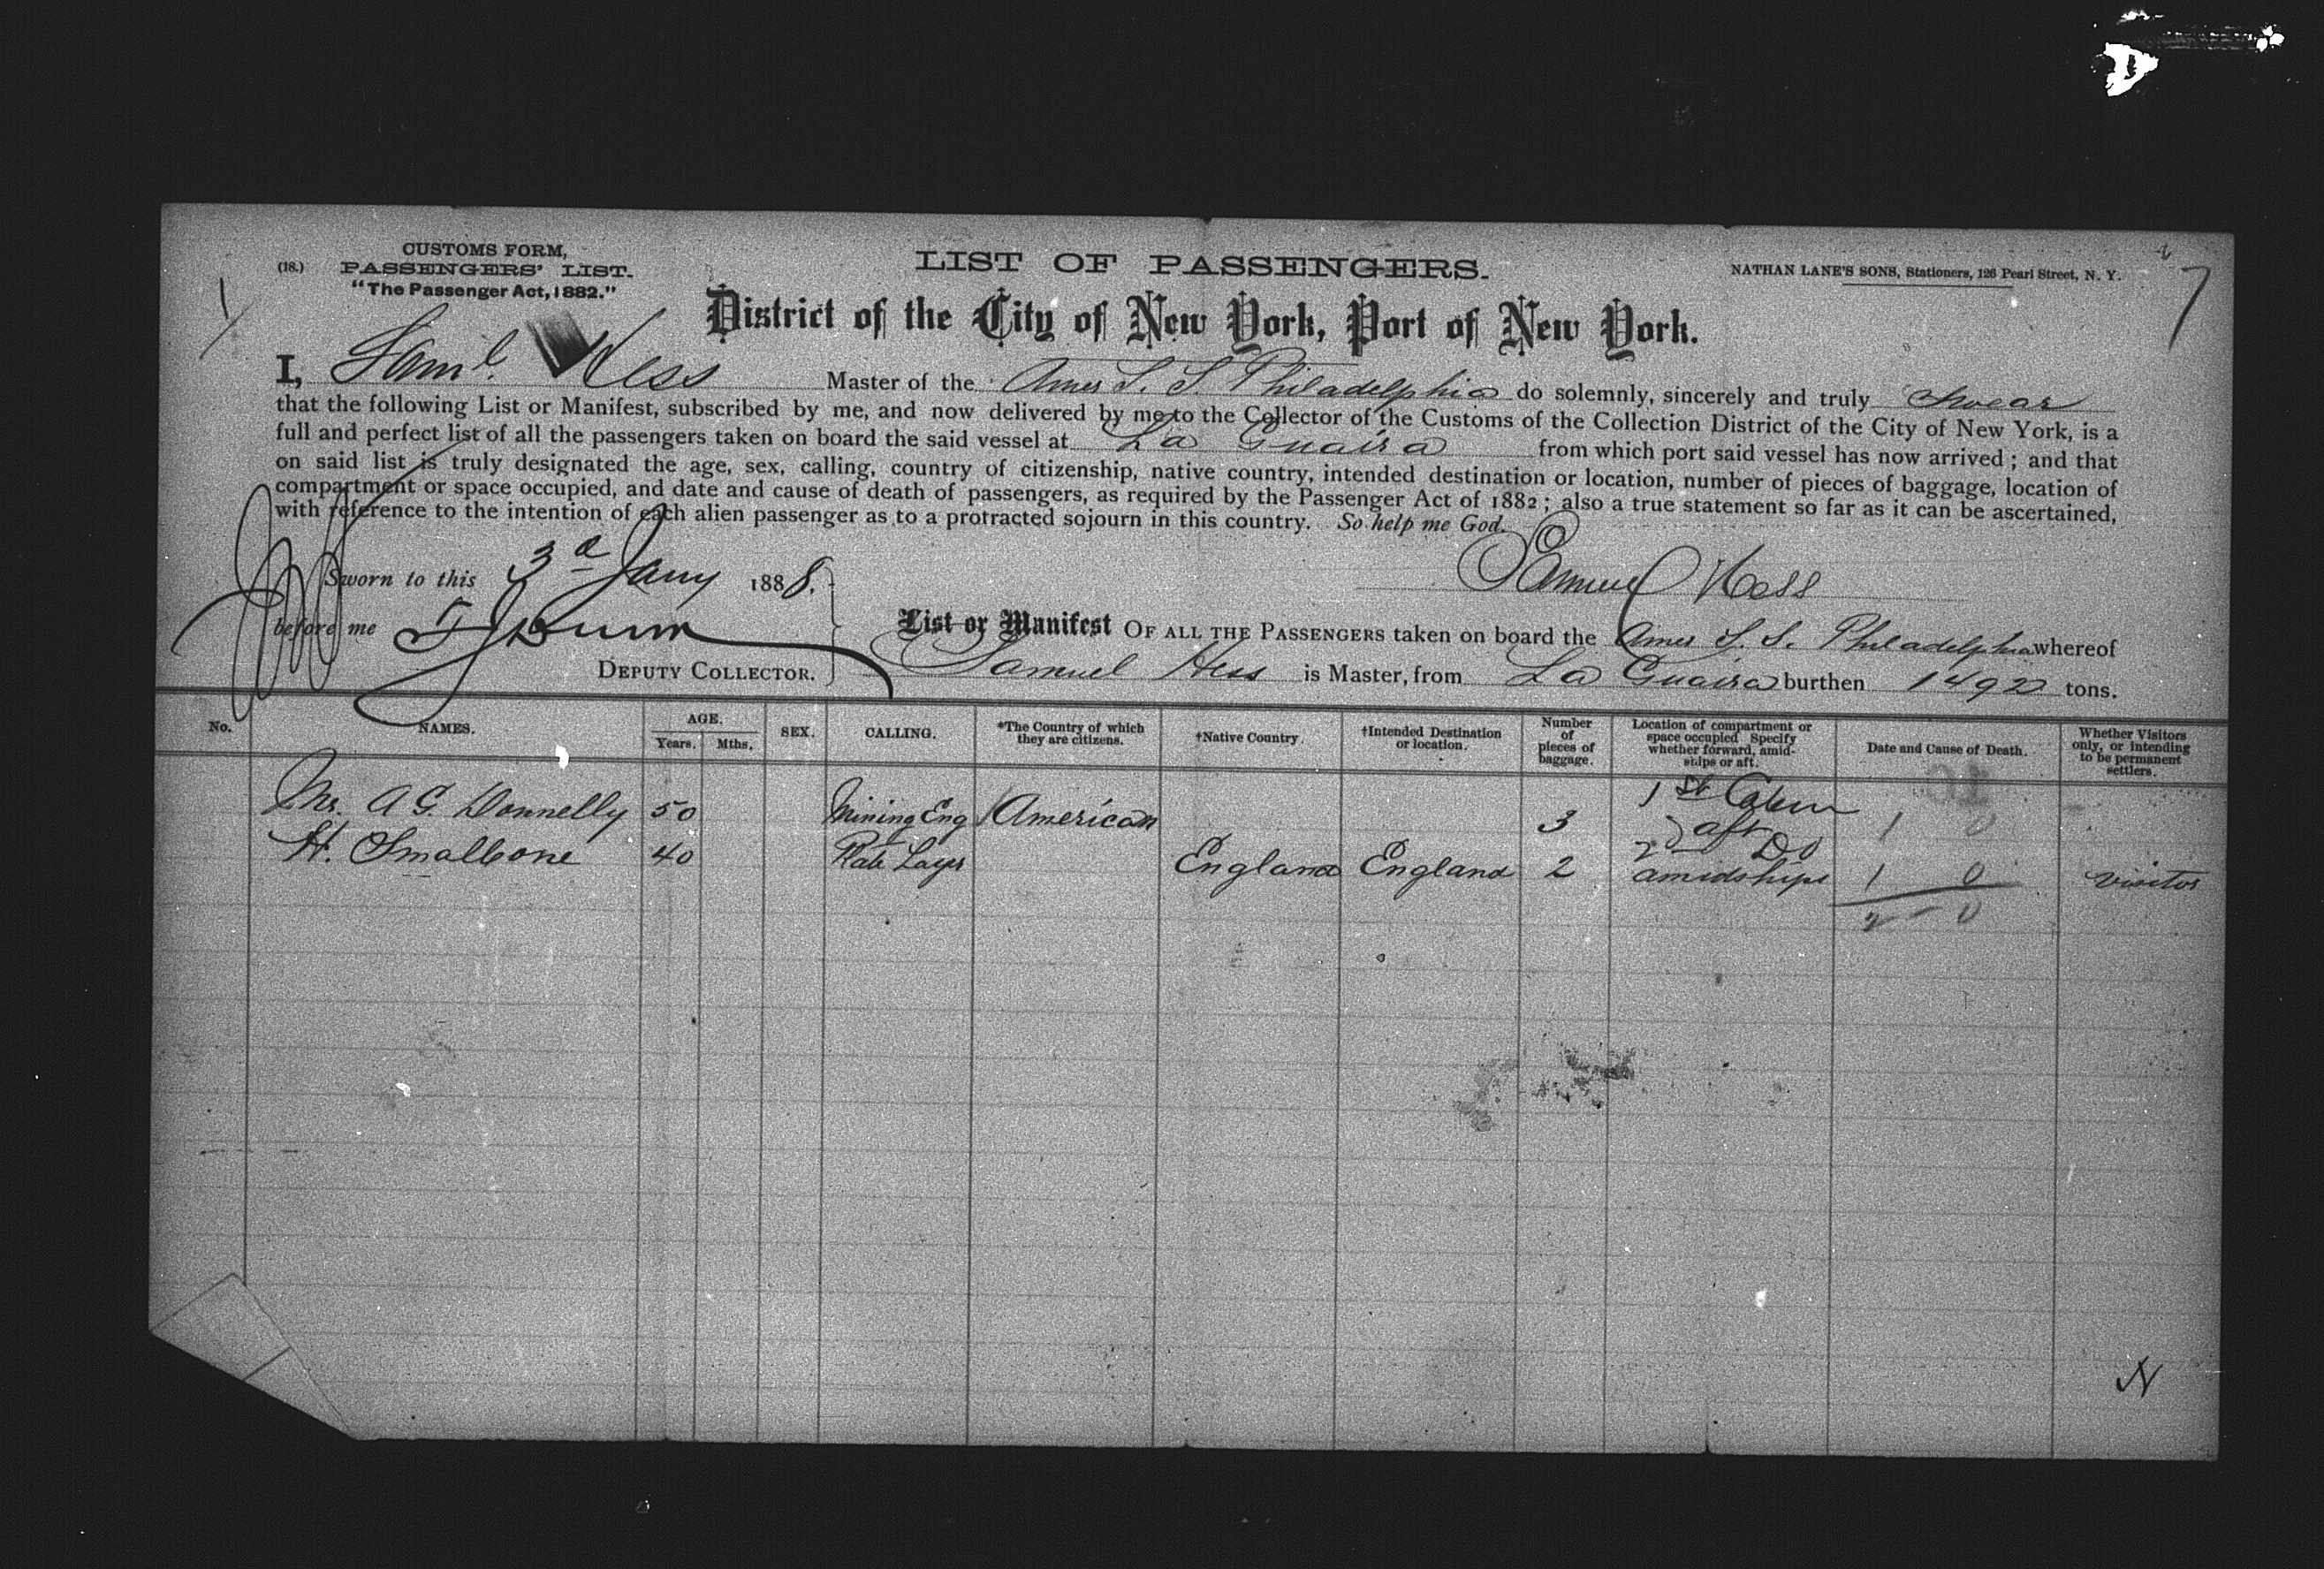 CUSTOMS FORM,
(18.) PASSENGERS' LIST.
"The Passenger Act, 1882."
LIST OF PASSENGERS.
NATHAN LANE'S SONS, Stationers, 126 Pearl Street, N. Y.
7
District of the City of New York, Port of New York.
I, Saml. Hess Master of the Amer S. S. Philadelphia do solemnly, sincerely and truly swear
that the following List or Manifest, subscribed by me, and now delivered by me to the Collector of the Customs of the Collection District of the City of New York, is a
full and perfect list of all the passengers taken on board the said vessel at La Guaira from which port said vessel has now arrived; and that
on said list is truly designated the age, sex, calling, country of citizenship, native country, intended destination or location, number of pieces of baggage, location of
compartment or space occupied, and date and cause of death of passengers, as required by the Passenger Act of 1882; also a true statement so far as it can be ascertained,
with reference to the intention of each alien passenger as to a protracted sojourn in this country. So help me God.
Sworn to this 3d Jany 1888.
Samuel Hess
before me
DEPUTY COLLECTOR.
List or Manifest OF ALL THE PASSENGERS taken on board the Amer S. S. Philadelphia whereof
Samuel Hess is Master, from La Guaira burthen 1492 tons.
No. NAMES. AGE. Years. Mths. SEX. CALLING. *The Country of which they are citizens. †Native Country. †Intended Destination or location. Number of pieces of baggage. Location of compartment or space occupied Specify whether forward, amidships or aft. Date and Cause of Death. Whether Visitors only, or intending to be permanent settlers.
Mr. A G. Donnelly 50 Mining Eng American 3 1st Cabin aft 1 0
H. Smalbone 40 Plate Layer England England 2 2d Do amidships 1 0 visitor
2 - 0
N